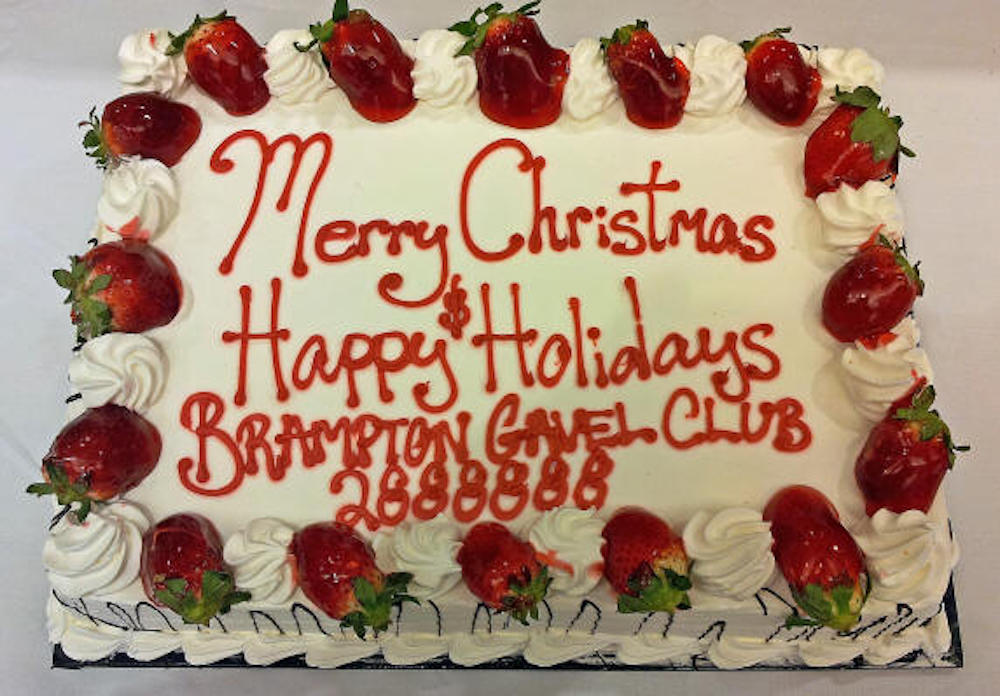 Merry Christmas
&
Happy Holidays
BRAMPTON GAVEL CLUB
2888888